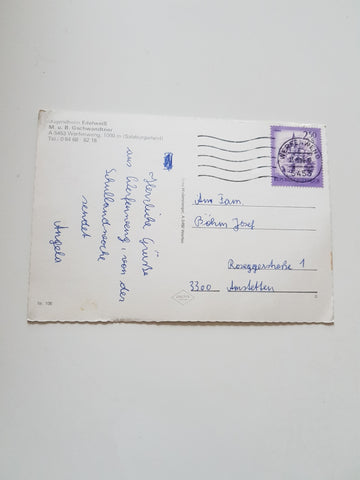 Jugendheim Edelweiß
M. u. B. Gschwandtner
A 5453 Werfenweng, 1000 m (Salzburgerland)
Tel.: 0 64 66 - 82 18
Herzliche Grüße
aus Werfenweng von der
Schullandwoche
sendet
Angela
Nr. 106
2.50
WERFENWENG
5453
An Fam.
Böhm Josef
Roseggerstraße 1
3300 Amstetten